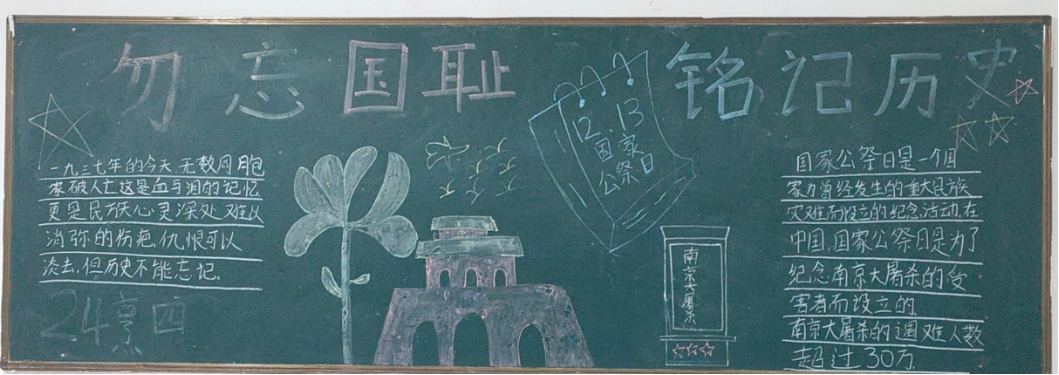 勿忘国耻 铭记历史
一九三七年的今天,无数同胞
家破人亡,这是血与泪的记忆
更是民族心灵深处难以
消弥的伤疤,仇恨可以
淡去,但历史不能忘记.
24 烹四
12.13
国家
公祭日
南京大屠杀
国家公祭日是一个国
家为曾经发生的重大民族
灾难而设立的纪念活动,在
中国,国家公祭日是为了
纪念南京大屠杀的受
害者而设立的.
南京大屠杀的遇难人数
超过30万